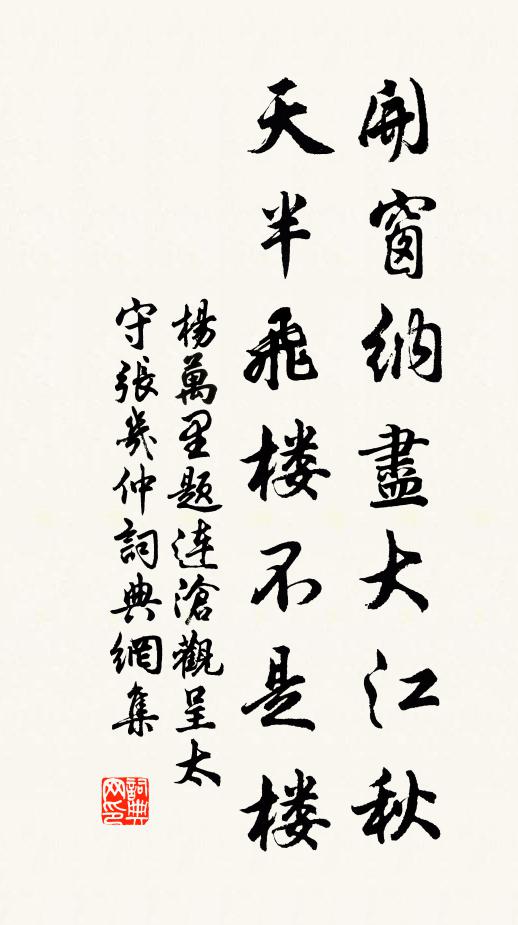 開窗納盡大江秋
天半飛楼不是楼
楊萬里题连滄觀呈太
守張幾仲詞典網集
詞典网印